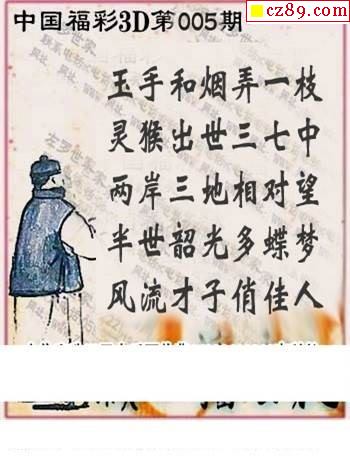 cz89.com
中国福彩3D第005期
玉手和烟弄一枝
灵猴出世三七中
两岸三地相对望
半世韶光多蝶梦
风流才子俏佳人